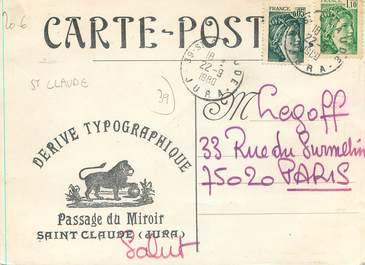 20-6
CARTE-POST
FRANCE
0,05
FRANCE
1,10
ST CLAUDE
39
18 H
22-9
1980
JURA
18 H
22-9
1980
DERIVE TYPOGRAPHIQUE
Passage du Miroir
SAINT CLAUDE (JURA)
Salut
M Legoff
33 Rue du Surmelin
75020 PARIS